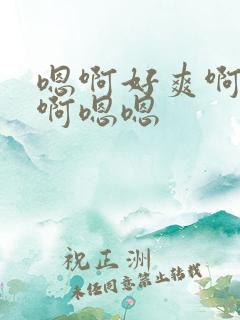 嗯啊好爽啊
啊嗯嗯
祝正洲
未经同意禁止转载